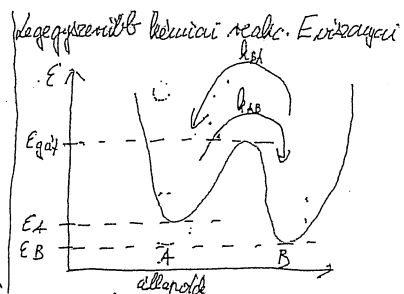 Legegyszerűbb kémiai reakc. E viszonyai
E
k_BA
k_AB
E gát
E_A
E_B
A
B
állapotok